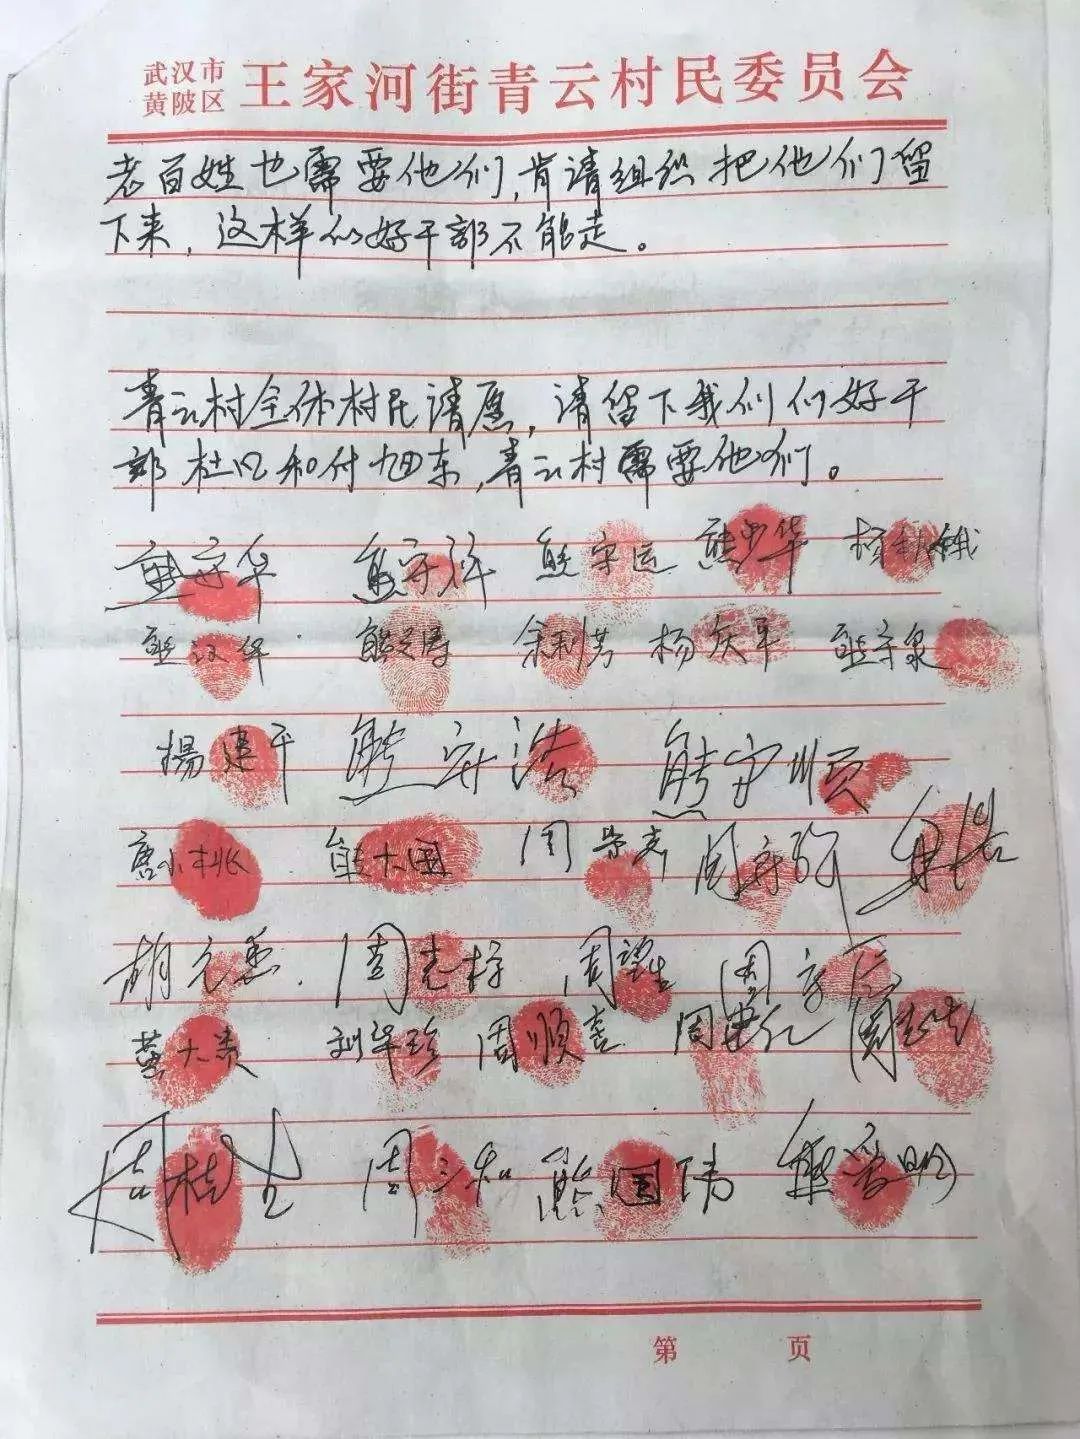 武汉市
黄陂区
王家河街青云村民委员会
老百姓也需要他们,肯请组织把他们留
下来,这样的好干部不能走。
青云村全体村民请愿,请留下我们们好干
部杜凡和付旭东,青云村需要他们。
熊守华 熊守祥 熊守运 熊少华 杨秋娥
熊汉华 熊文涛 余利芳 杨庆平 熊守泉
楊建平 熊安浩 熊守顺
唐小桃 熊大国 周 周
胡元 周克 周望生 周守
蔡大 刘 周顺喜 周 周
周桂 周 熊国伟
第 页